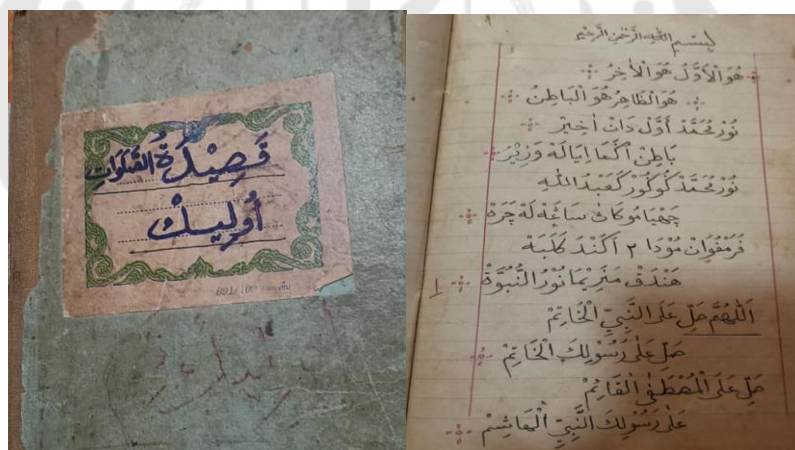 قَصِيْدَةُ الصَّلَوَاتِ
أُولِيكْ
بِسْمِ اللّٰهِ الرَّحْمٰنِ الرَّحِيْمِ
هُوَ الْأَوَّلُ هُوَ الْأٰخِرُ
هُوَ الظَّاهِرُ هُوَ الْبَاطِنُ
نُوْرْ مُحَمَّدْ أَوَّلْ دَانْ أٰخِيْر
بَاطِنْ أَكَمَا إِيَالَهْ وَزِيْر
نُوْرْ مُحَمَّدْ كَعَبْدُ اللّٰه
چَهْيَا مُوكَاڽْ سَاڠَةْ لَهْ چَرَهْ
مُوْدَا ٢ أَكَنْدَ كَلَبَهْ
هَنْدَقْ مَنَرِيْمَا نُوْرُ النُّبُوَّةْ
١
اَللّٰهُمَّ صَلِّ عَلَى النَّبِيِّ الْخَاتِمْ
صَلِّ عَلٰى رَسُوْلِكَ الْخَاتِمْ
صَلِّ عَلَى الْمُصْطَفٰى الْقَائِمْ
عَلٰى رَسُوْلِكَ النَّبِيِّ الْهَاشِمْ